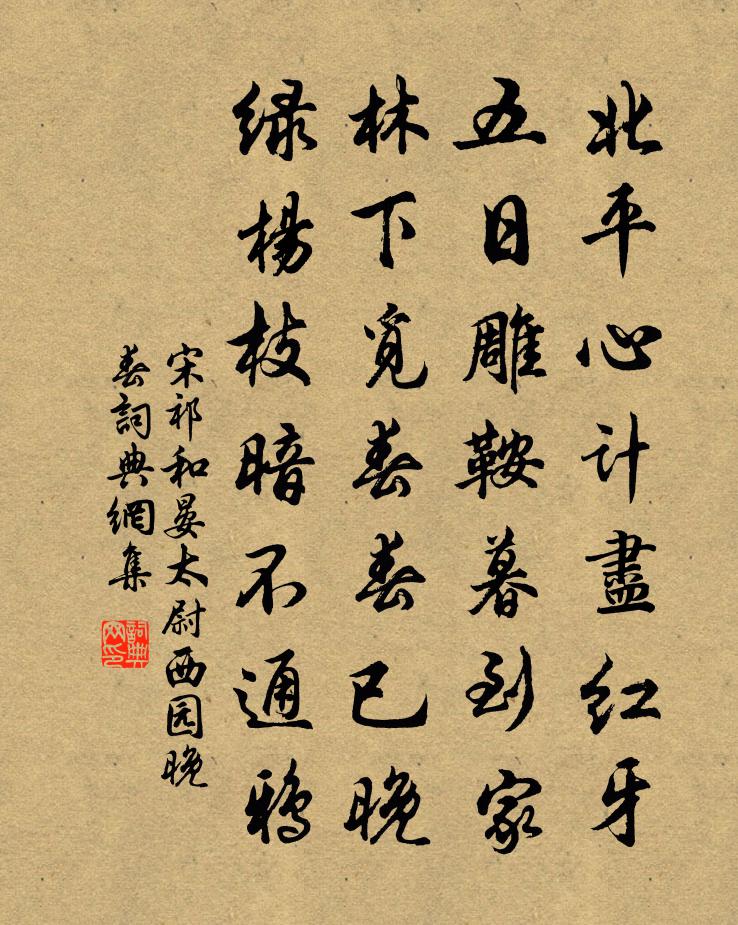 北平心计盡红牙
五日雕鞍暮到家
林下觅春春已晚
緑楊枝暗不通鴉
宋祁和晏太尉西园晚
春詞典網集
詞典网印